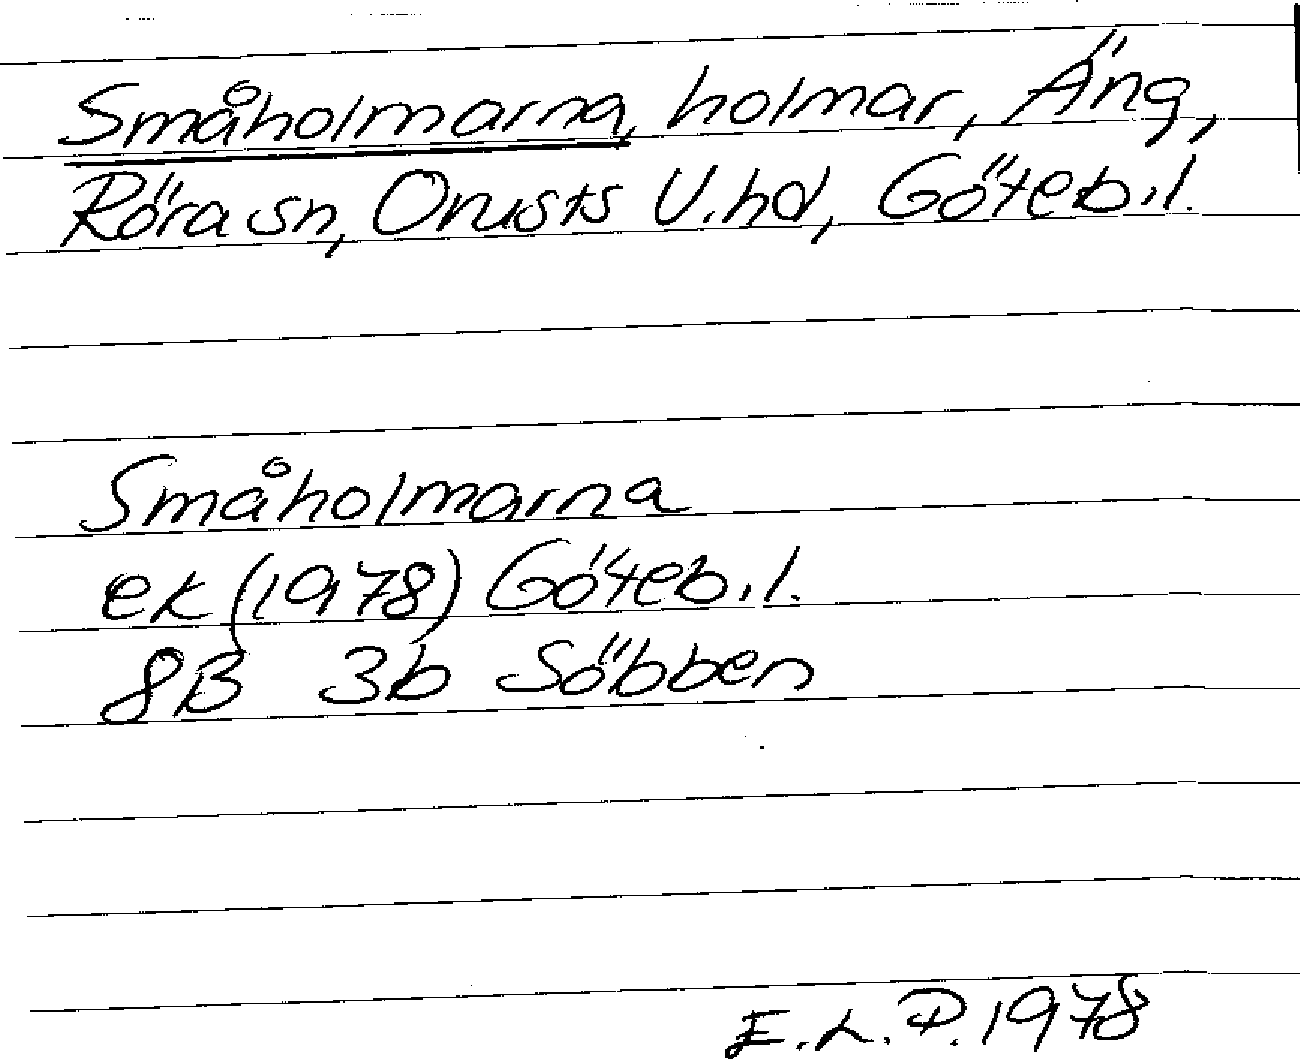 Småholmarna, holmar, Äng,
Röra sn, Orusts V.hd, Göteb.l.
Småholmarna
ek (1978) Göteb.l.
8B 3b Söbben
E.L.P. 1978